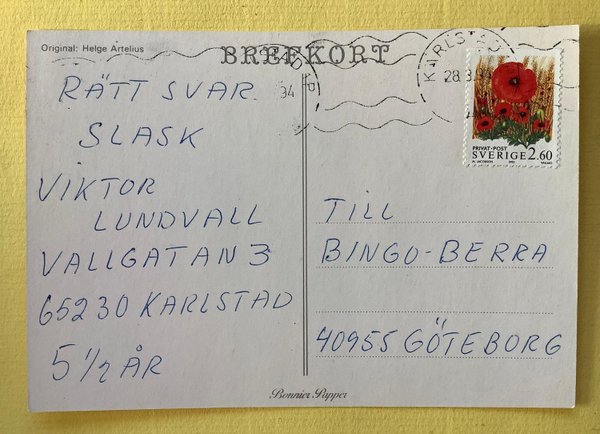 Original: Helge Artelius
BREFKORT
RÄTT SVAR
SLASK
VIKTOR
LUNDVALL
VALLGATAN 3
65230 KARLSTAD
5 1/2 ÅR
KARLSTAD
28.3
PRIVAT-POST
SVERIGE 2.60
TILL
BINGO-BERRA
40955 GÖTEBORG
Bonnier Papper